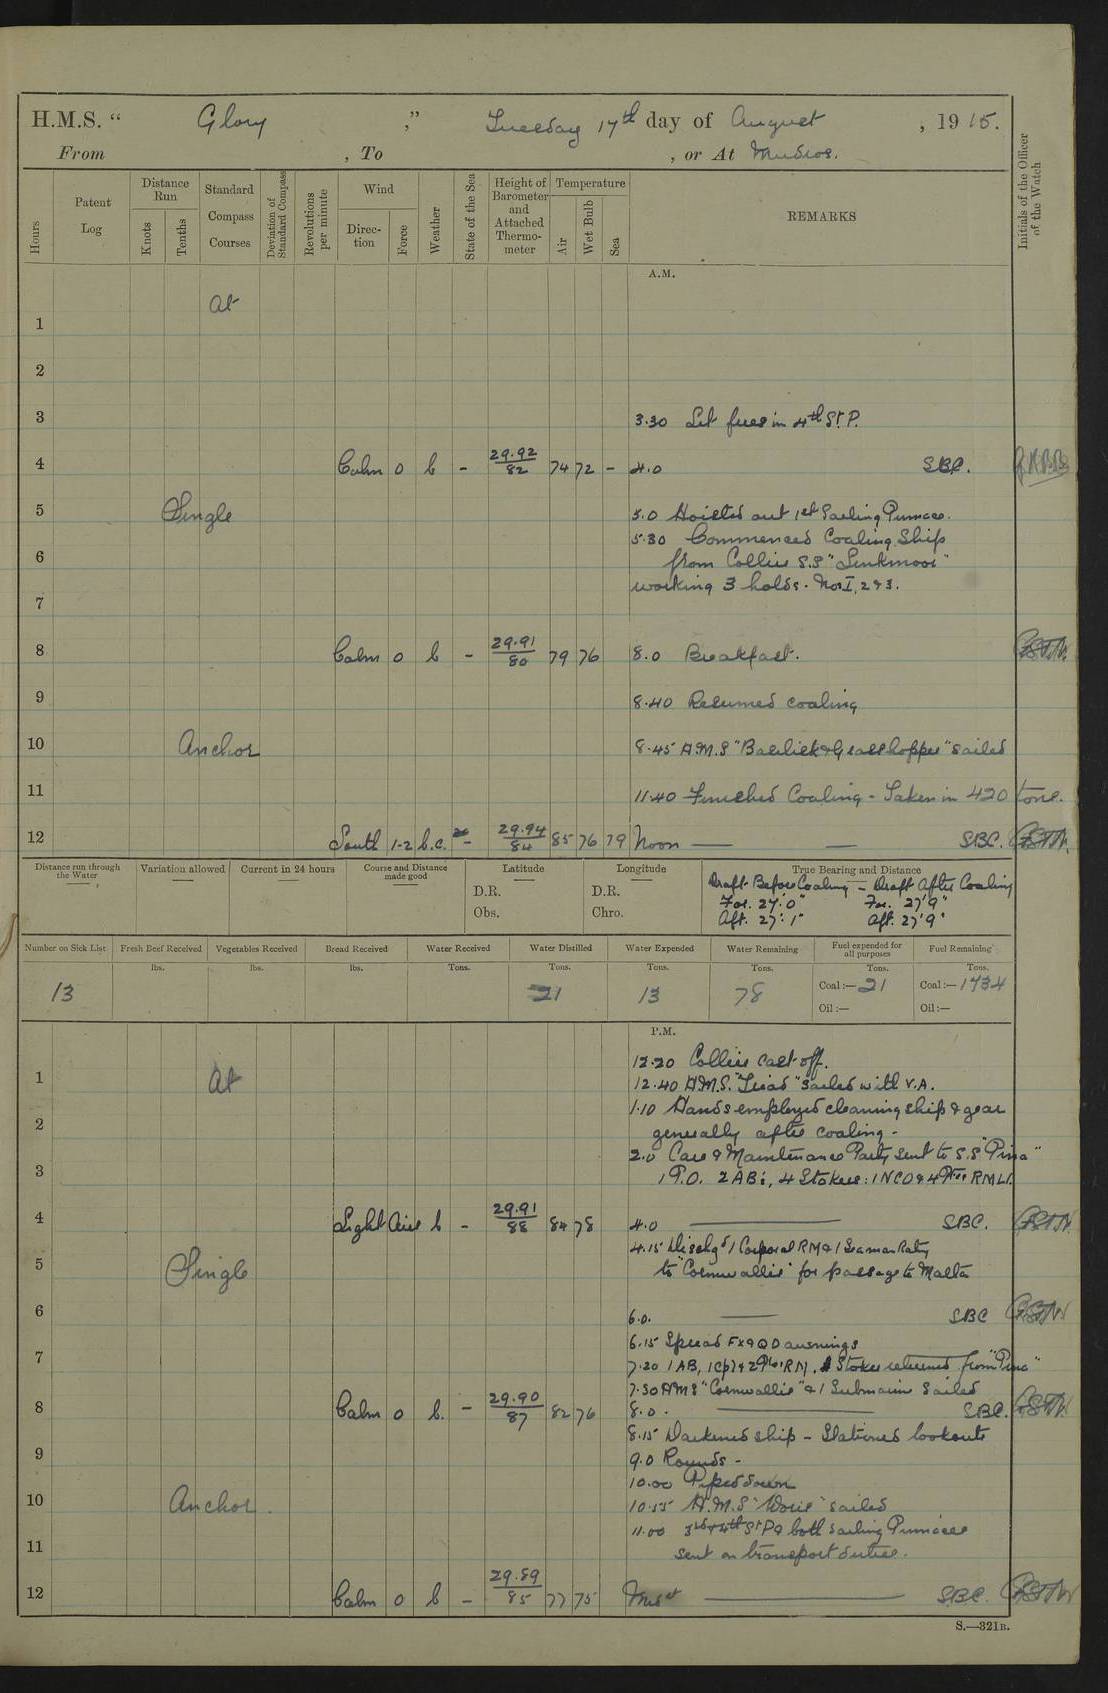 H.M.S. “ Glory ,” Tuesday 17th day of August , 1915.
From , To , or At Mudros.
Hours
Patent Log
Distance Run
Knots
Tenths
Standard Compass Courses
Deviation of Standard Compass
Revolutions per minute
Wind
Direction
Force
Weather
State of the Sea
Height of Barometer and Attached Thermometer
Temperature
Air
Wet Bulb
Sea
REMARKS
Initials of the Officer of the Watch
A.M.
At
1
2
3 3.30 Lit fires in 4th St. P.
4 Calm 0 b - 29.92/82 74 72 - 4.0 SBC.
5 Single 5.0 Hoisted out 1st Sailing Pinnace.
5.30 Commenced Coaling Ship
6 from Collier S.S "Linkmoor"
working 3 holds. Nos I, 2 & 3.
7
8 Calm 0 b - 29.91/80 79 76 8.0 Breakfast.
9 8.40 Resumed coaling
10 Anchor 8.45 H.M.S "Basilisk & Grasshopper" sailed
11 11.40 Finished Coaling - Taken in 420 tons.
12 South 1-2 b.c. - 29.94/84 85 76 79 Noon — — SBC.
Distance run through the Water
Variation allowed
Current in 24 hours
Course and Distance made good
Latitude
D.R.
Obs.
Longitude
D.R.
Chro.
True Bearing and Distance
Draft Before Coaling - Draft After Coaling
For. 27'.0" For. 27'9"
Aft. 27'.1" Aft. 27'9"
Number on Sick List
Fresh Beef Received
Vegetables Received
Bread Received
Water Received
Water Distilled
Water Expended
Water Remaining
Fuel expended for all purposes
Fuel Remaining
lbs. lbs. lbs. Tons. Tons. Tons. Tons. Tons. Tons.
13 21 13 78 Coal :— 21 Coal :— 1734
Oil :— Oil :—
P.M.
12.20 Collier cast off.
1 At 12.40 H.M.S. "Triad" sailed with V.A.
1.10 Hands employed cleaning ship & gear
2 generally after coaling -
2.0 Care & Maintenance Party sent to S.S "Pina"
3 1 P.O. 2 ABs, 4 Stokers: 1 NCO & 4 Ptes RMLI.
4 Light Airs b - 29.91/88 84 78 4.0 — SBC.
4.15 Dischgd 1 Corporal RM & 1 Seaman Ratg
5 Single to "Cornwallis" for passage to Malta
6 6.0. — SBC
6.15 Spread Fx & QD awnings
7 7.20 1 AB, 1 Cpl & 2 Ptes RM, Stoker returned from "Pina"
7.30 HMS "Cornwallis" & 1 Submarine sailed
8 Calm 0 b. - 29.90/87 82 76 8.0. — SBC.
8.15 Darkened ship - Stationed lookouts
9 9.0 Rounds -
10.00 Piped down
10 Anchor. 10.55 H.M.S "Doris" sailed
11.00 3rd & 4th St P & both sailing Pinnaces
11 sent on transport duties.
12 Calm 0 b - 29.89/85 77 75 Midt — SBC.
S.—321B.